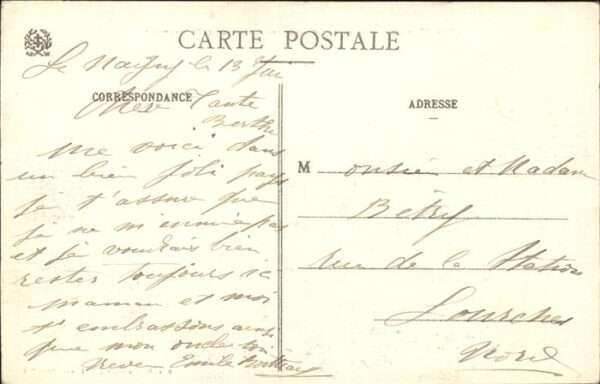 CARTE POSTALE
Le 13
CORRESPONDANCE
Tante
Berthe
me voici dans
un bien joli pays
je t'assure que
je ne m'ennuie pas
et je voudrais bien
rester toujours ici
maman et moi
t'embrassons ainsi
que mon oncle ton
neveu Emile
ADRESSE
Monsieur et Madame
Bétry
rue de la Station
Lourches
Nord